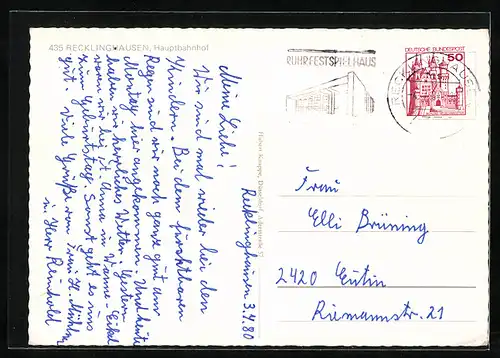 435 RECKLINGHAUSEN, Hauptbahnhof
RUHRFESTSPIELHAUS
DEUTSCHE BUNDESPOST
50
RECKLINGHAUSEN
Recklinghausen 3.4.80
Meine Liebe!
Wir sind mal wieder bei den
Kindern. Bei dem furchtbaren
Regen sind wir noch ganz gut am
Montag hier angekommen. Und heute
haben wir herrliches Wetter. Gestern
waren wir bei Anna in Wanne-Eikel
zum Geburtstag. Sonst geht es uns
gut. Viele Grüße von
u. Herr Reinhold
Frau
Elli Brüning
2420 Eutin
Riemannstr. 21